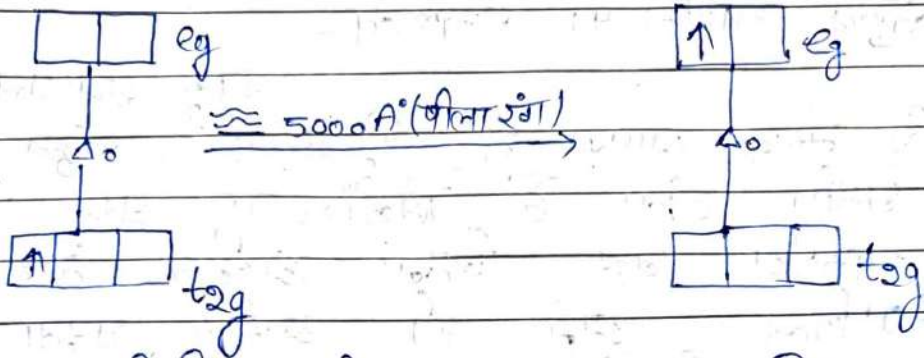 eg
↑ eg
≈ 5000 A° (पीला रंग)
Δo
Δo
↑ t2g
t2g